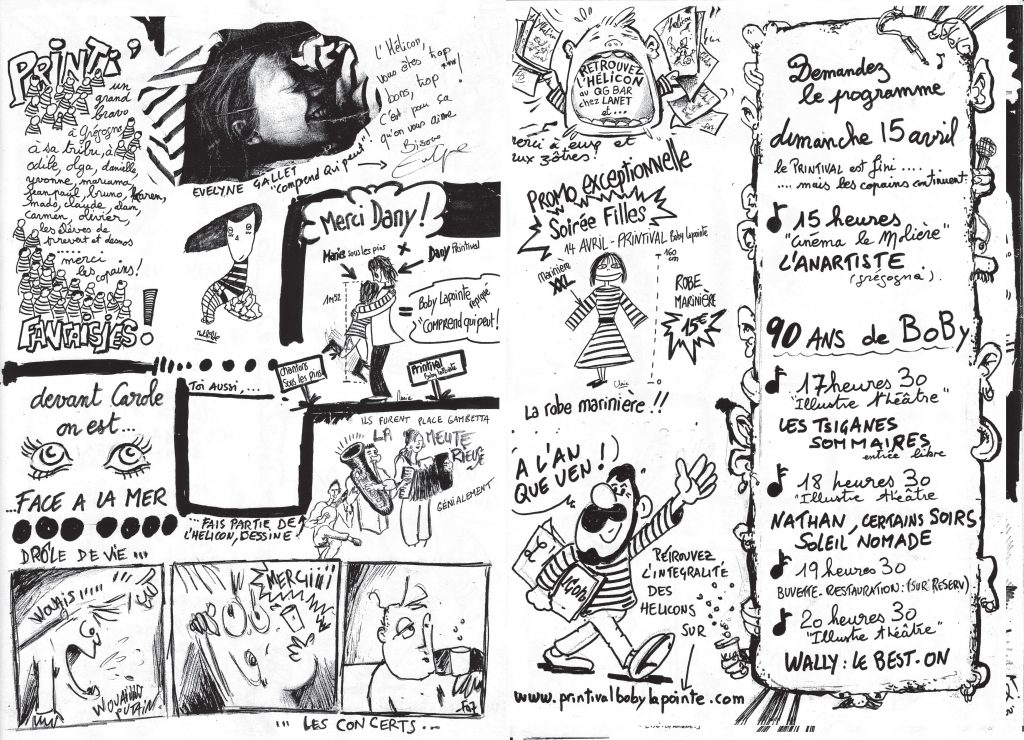 PRINTI'
un
grand
bravo
à Grégogna
à sa tribu, à
odile, olga, danielle,
yvonne, mariama,
jean paul, bruno, karen,
mado, claude, alain
carmen, olivier,
les élèves de
prevert et desnos
....
merci
les
copains!
FANTAISIES!
l'Hélicon,
vous êtes trop
bons, trop
C'est pour ça
qu'on vous aime
Bisous
EVELYNE GALLET
"Comprend Qui peut"
Merci Dany!
Marie sous les pins × Dany Printival
1m52
= Boby Lapointe
"Comprend qui peut!
Chantons
Sous les pins
Printival
Boby Lapointe
devant Carole
on est...
...FACE A LA MER
TOI AUSSI,...
...FAIS PARTIE DE
L'HELICON, DESSINE!
ILS FURENT PLACE GAMBETTA
LA MEUTE
RIEUSE
GÉNIALEMENT
DRÔLE DE VIE...
WOUAIS!
WOUAIIII
PUTAIN
MERCIiii
Fa7
... LES CONCERTS...
RETROUVEZ
L'HÉLICON
au QG BAR
chez LANET
et...
merci à eux et
aux zôtres!
PROMO exceptionnelle
Soirée Filles
14 AVRIL - PRINTIVAL Boby Lapointe
marinière
XXL
160 cm
ROBE
MARINIÈRE
15€
La robe marinière!!
A L'AN
QUE VEN!
RETROUVEZ
L'INTEGRALITÉ
DES
HELICONS
SUR
www.printivalbobylapointe.com
Demandez
le programme
dimanche 15 avril
le PRINTIVAL est fini ....
.... mais les copains continuent:
15 heures
"Cinéma le Molière"
L'ANARTISTE
(grégogna)
90 ANS de BoBy
17 heures 30
"Illustre théâtre"
LES TSIGANES
SOMMAIRES
entrée libre
18 heures 30
"Illustre théâtre
NATHAN, CERTAINS SOIRS
SOLEIL NOMADE
19 heures 30
BUVETTE-RESTAURATION: (SUR RESERV)
20 heures 30
"Illustre théâtre"
WALLY: LE BEST-ON